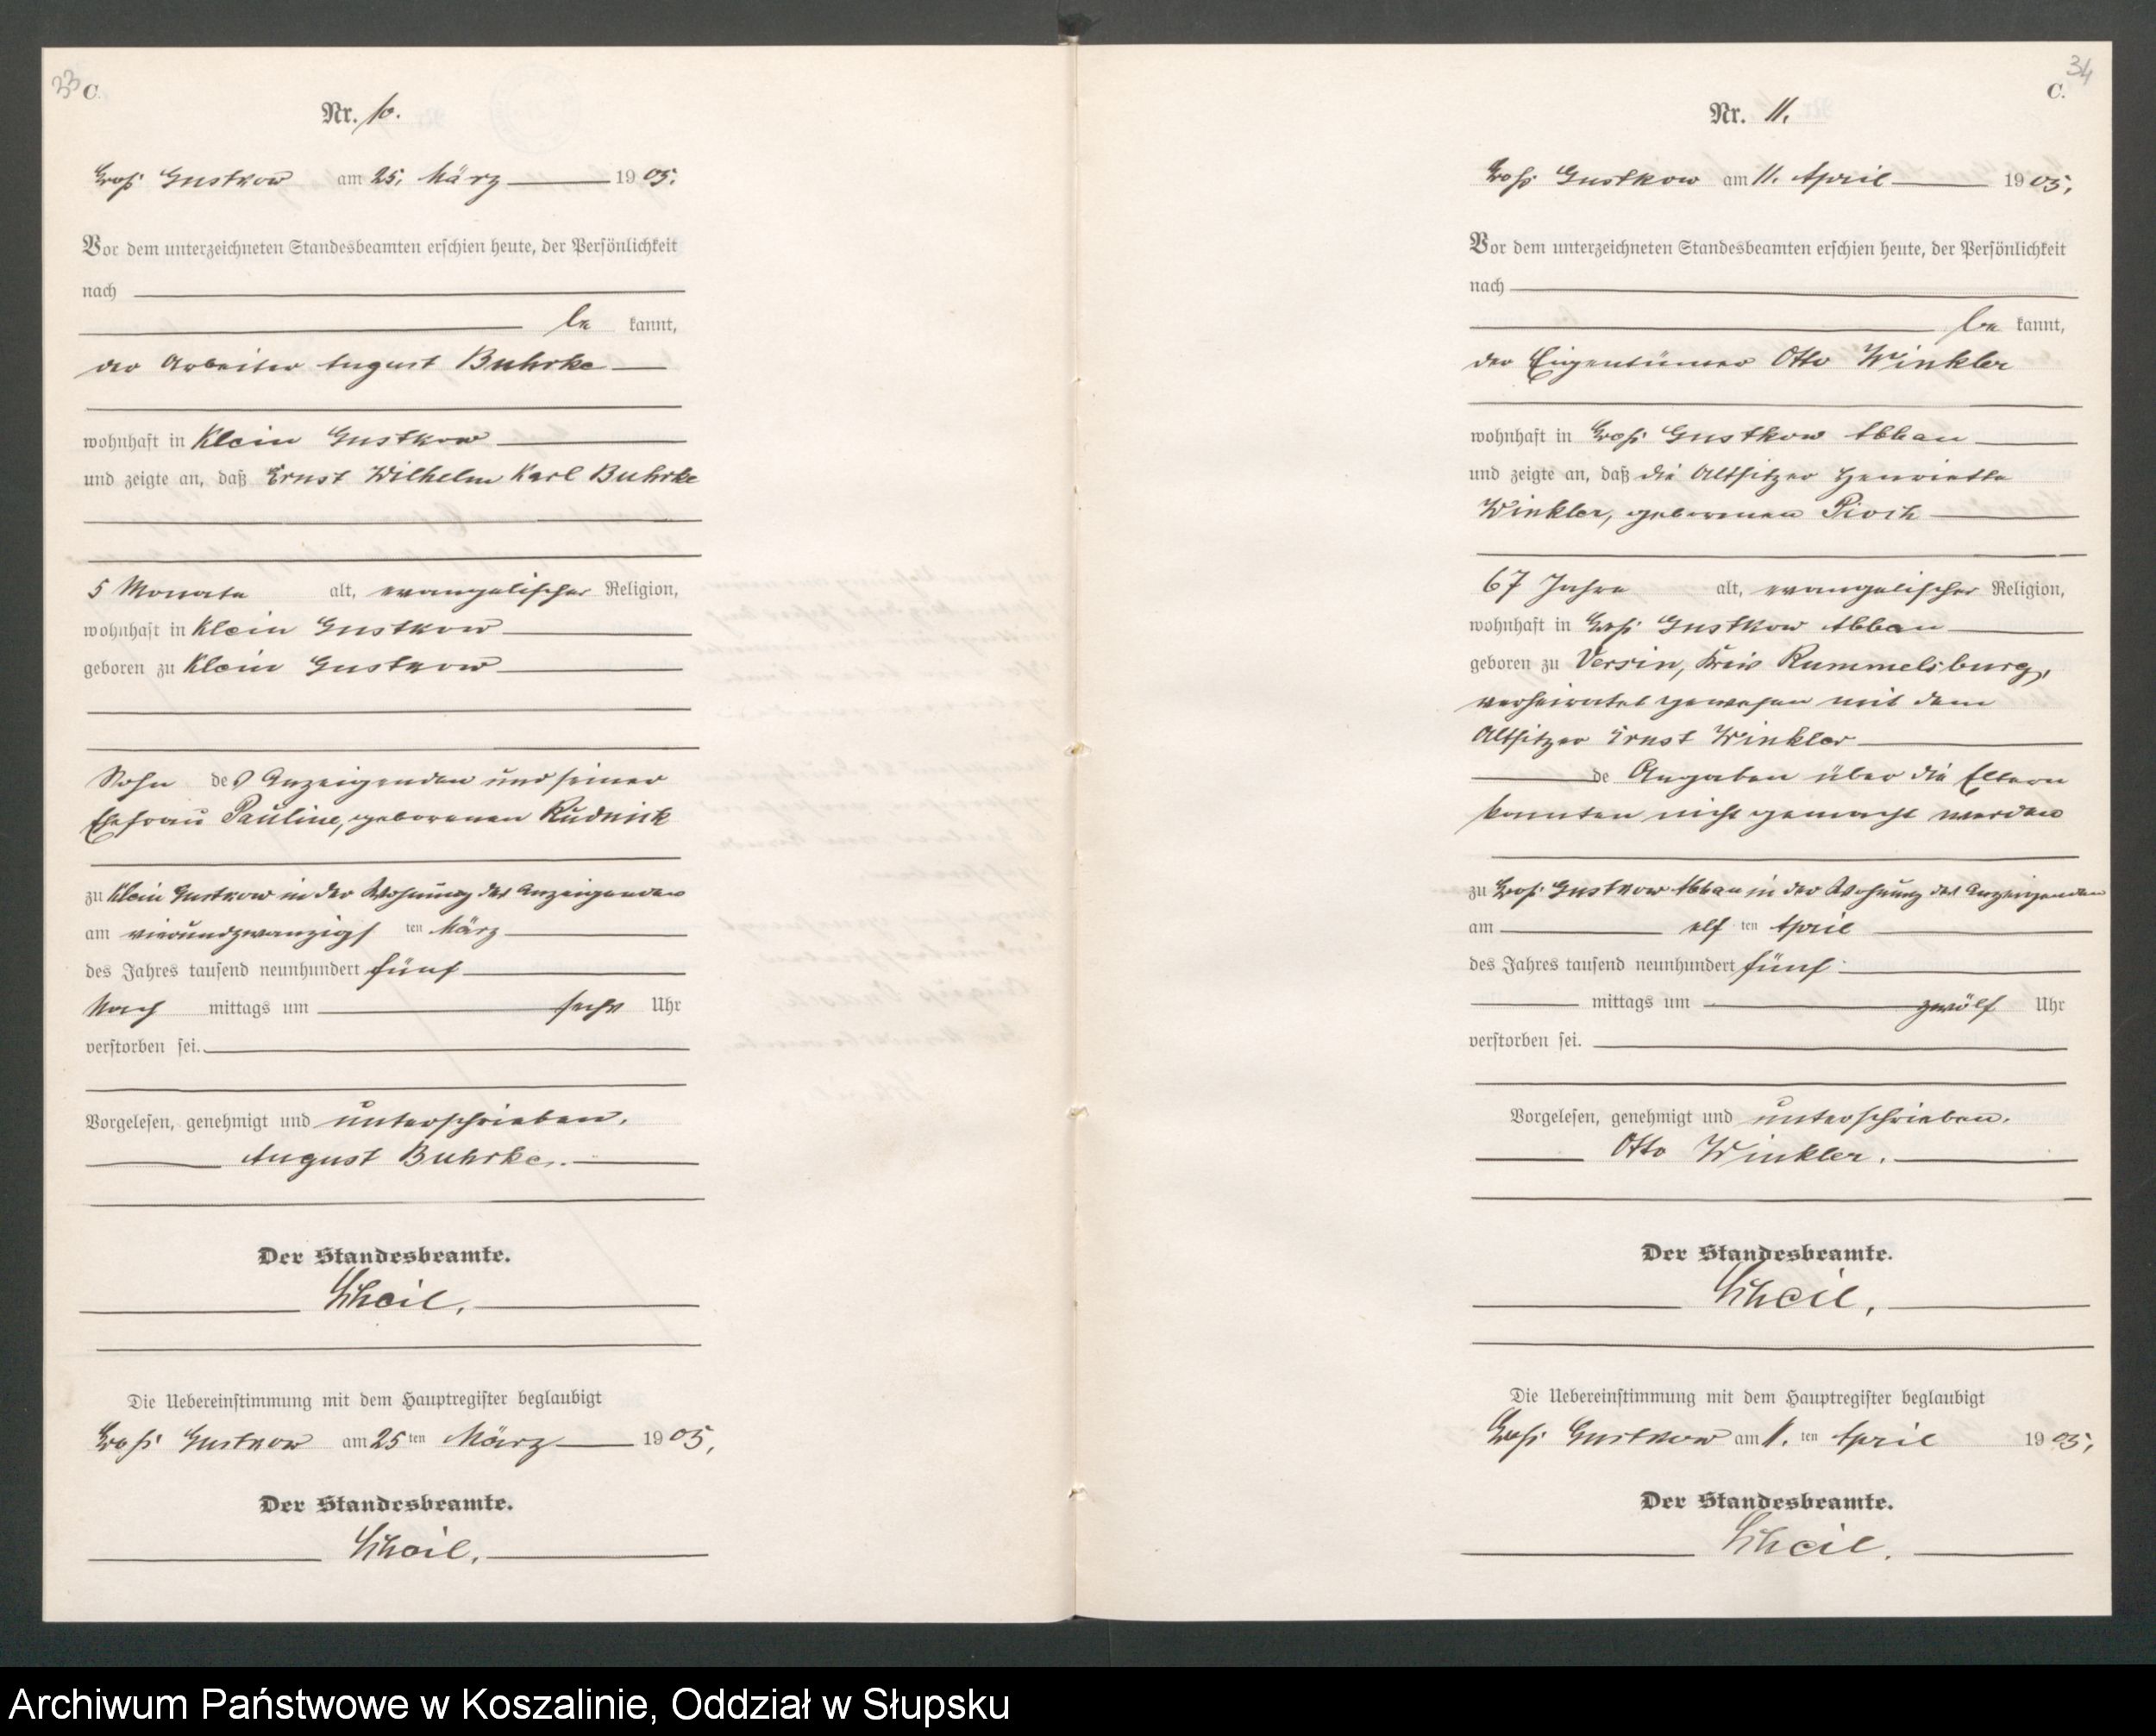 33 C.
Nr. 10.
Groß Gustkow am 25. März 1905.
Vor dem unterzeichneten Standesbeamten erschien heute, der Persönlichkeit
nach
be kannt,
der Arbeiter August Buhrke
wohnhaft in Klein Gustkow
und zeigte an, daß Ernst Wilhelm Karl Buhrke
5 Monate alt, evangelischer Religion,
wohnhaft in Klein Gustkow
geboren zu Klein Gustkow
Sohn des Anzeigenden und seiner
Ehefrau Pauline, geborenen Rudnick
zu Klein Gustkow in der Wohnung des Anzeigenden
am vierundzwanzigs ten März
des Jahres tausend neunhundert fünf
Nach mittags um sechs Uhr
verstorben sei.
Vorgelesen, genehmigt und unterschrieben.
August Buhrke.
Der Standesbeamte.
Scheil.
Die Uebereinstimmung mit dem Hauptregister beglaubigt
Groß Gustkow am 25ten März 1905.
Der Standesbeamte.
Scheil.
34
C.
Nr. 11.
Groß Gustkow am 11. April 1905.
Vor dem unterzeichneten Standesbeamten erschien heute, der Persönlichkeit
nach
be kannt,
der Eigentümer Otto Winkler
wohnhaft in Groß Gustkow Abbau
und zeigte an, daß die Altsitzer Henriette
Winkler, geborenen Pioch
67 Jahre alt, evangelischer Religion,
wohnhaft in Groß Gustkow Abbau
geboren zu Versin, Kreis Rummelsburg,
verheiratet gewesen mit dem
Altsitzer Ernst Winkler
de Angaben über die Eltern
konnten nicht gemacht werden
zu Groß Gustkow Abbau in der Wohnung des Anzeigenden
am elf ten April
des Jahres tausend neunhundert fünf
mittags um zwölf Uhr
verstorben sei.
Vorgelesen, genehmigt und unterschrieben.
Otto Winkler.
Der Standesbeamte.
Scheil.
Die Uebereinstimmung mit dem Hauptregister beglaubigt
Groß Gustkow am 11. ten April 1905.
Der Standesbeamte.
Scheil.
Archiwum Państwowe w Koszalinie, Oddział w Słupsku